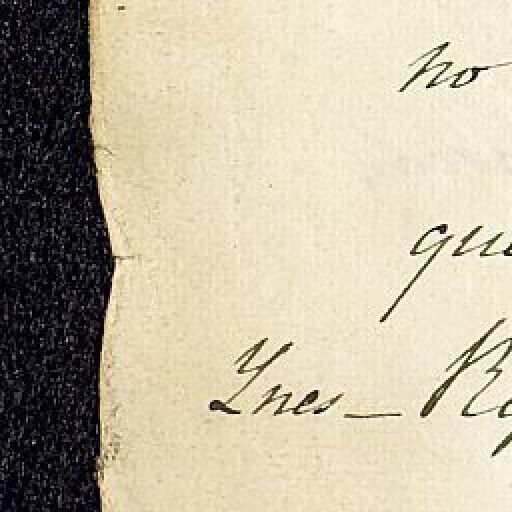 no
que
Ynes_